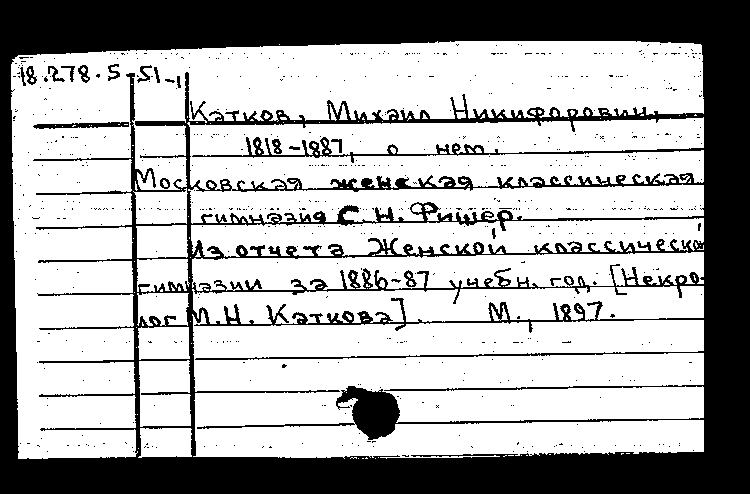 18.278.5-51-1
Катков, Михаил Никифорович,
1818-1887, о нем.
Московская женская классическая
гимназия С. Н. Фишер.
Из отчета Женской классическо
гимназии за 1886-87 учебн. год. [Некро-
лог М.Н. Каткова]. М., 1897.